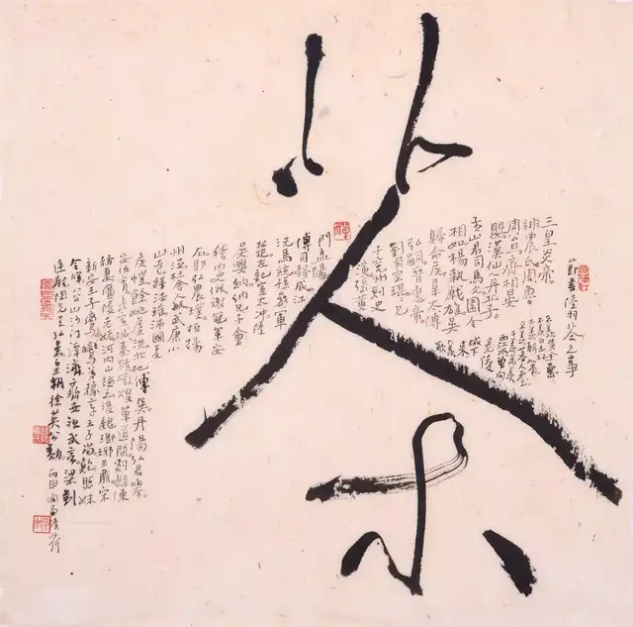 茶
節書陸羽茶之事
三皇炎帝
神農氏周魯
周公旦齊相晏
嬰漢仙丹丘子
黃山君司馬文園令
相如楊執戟雄吳
歸命侯韋太傅
弘嗣晉惠帝
劉司空琨琨兄
子兗州刺史
演張黃
門孟陽
傅司隸咸江
洗馬統孫參軍
楚左記室太沖陸
吳興納納兄子會
稽內史俶謝冠軍安
石郭弘農璞桓揚
州溫杜舍人毓武康小
山寺釋法瑤沛國夏
侯愷餘姚虞洪北地傅巽丹陽弘君舉
安任育長宣城秦精敦煌單道開剡縣陳
務妻廣陵老姥河內山謙之後魏瑯琊王肅宋
新安王子鸞鸞弟豫章王子尚鮑照妹
令暉八公山沙門譚濟齊世祖武帝梁劉
廷尉陶先生弘景皇朝徐英公勣